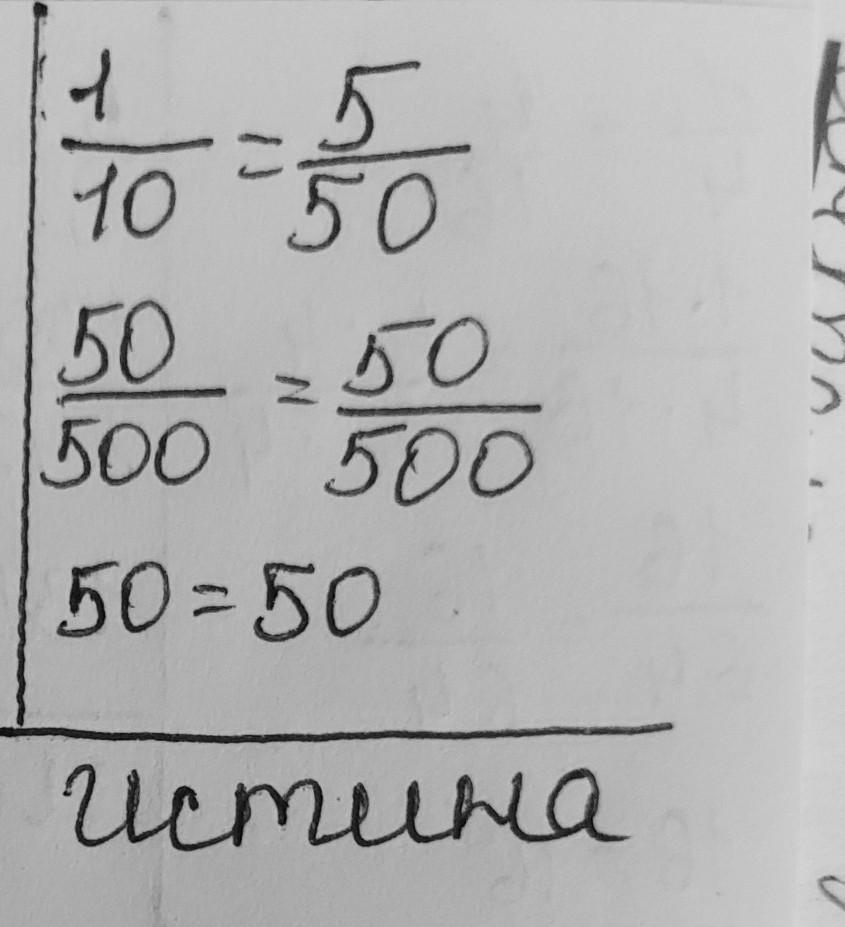 1/10 = 5/50
50/500 = 50/500
50 = 50
истина